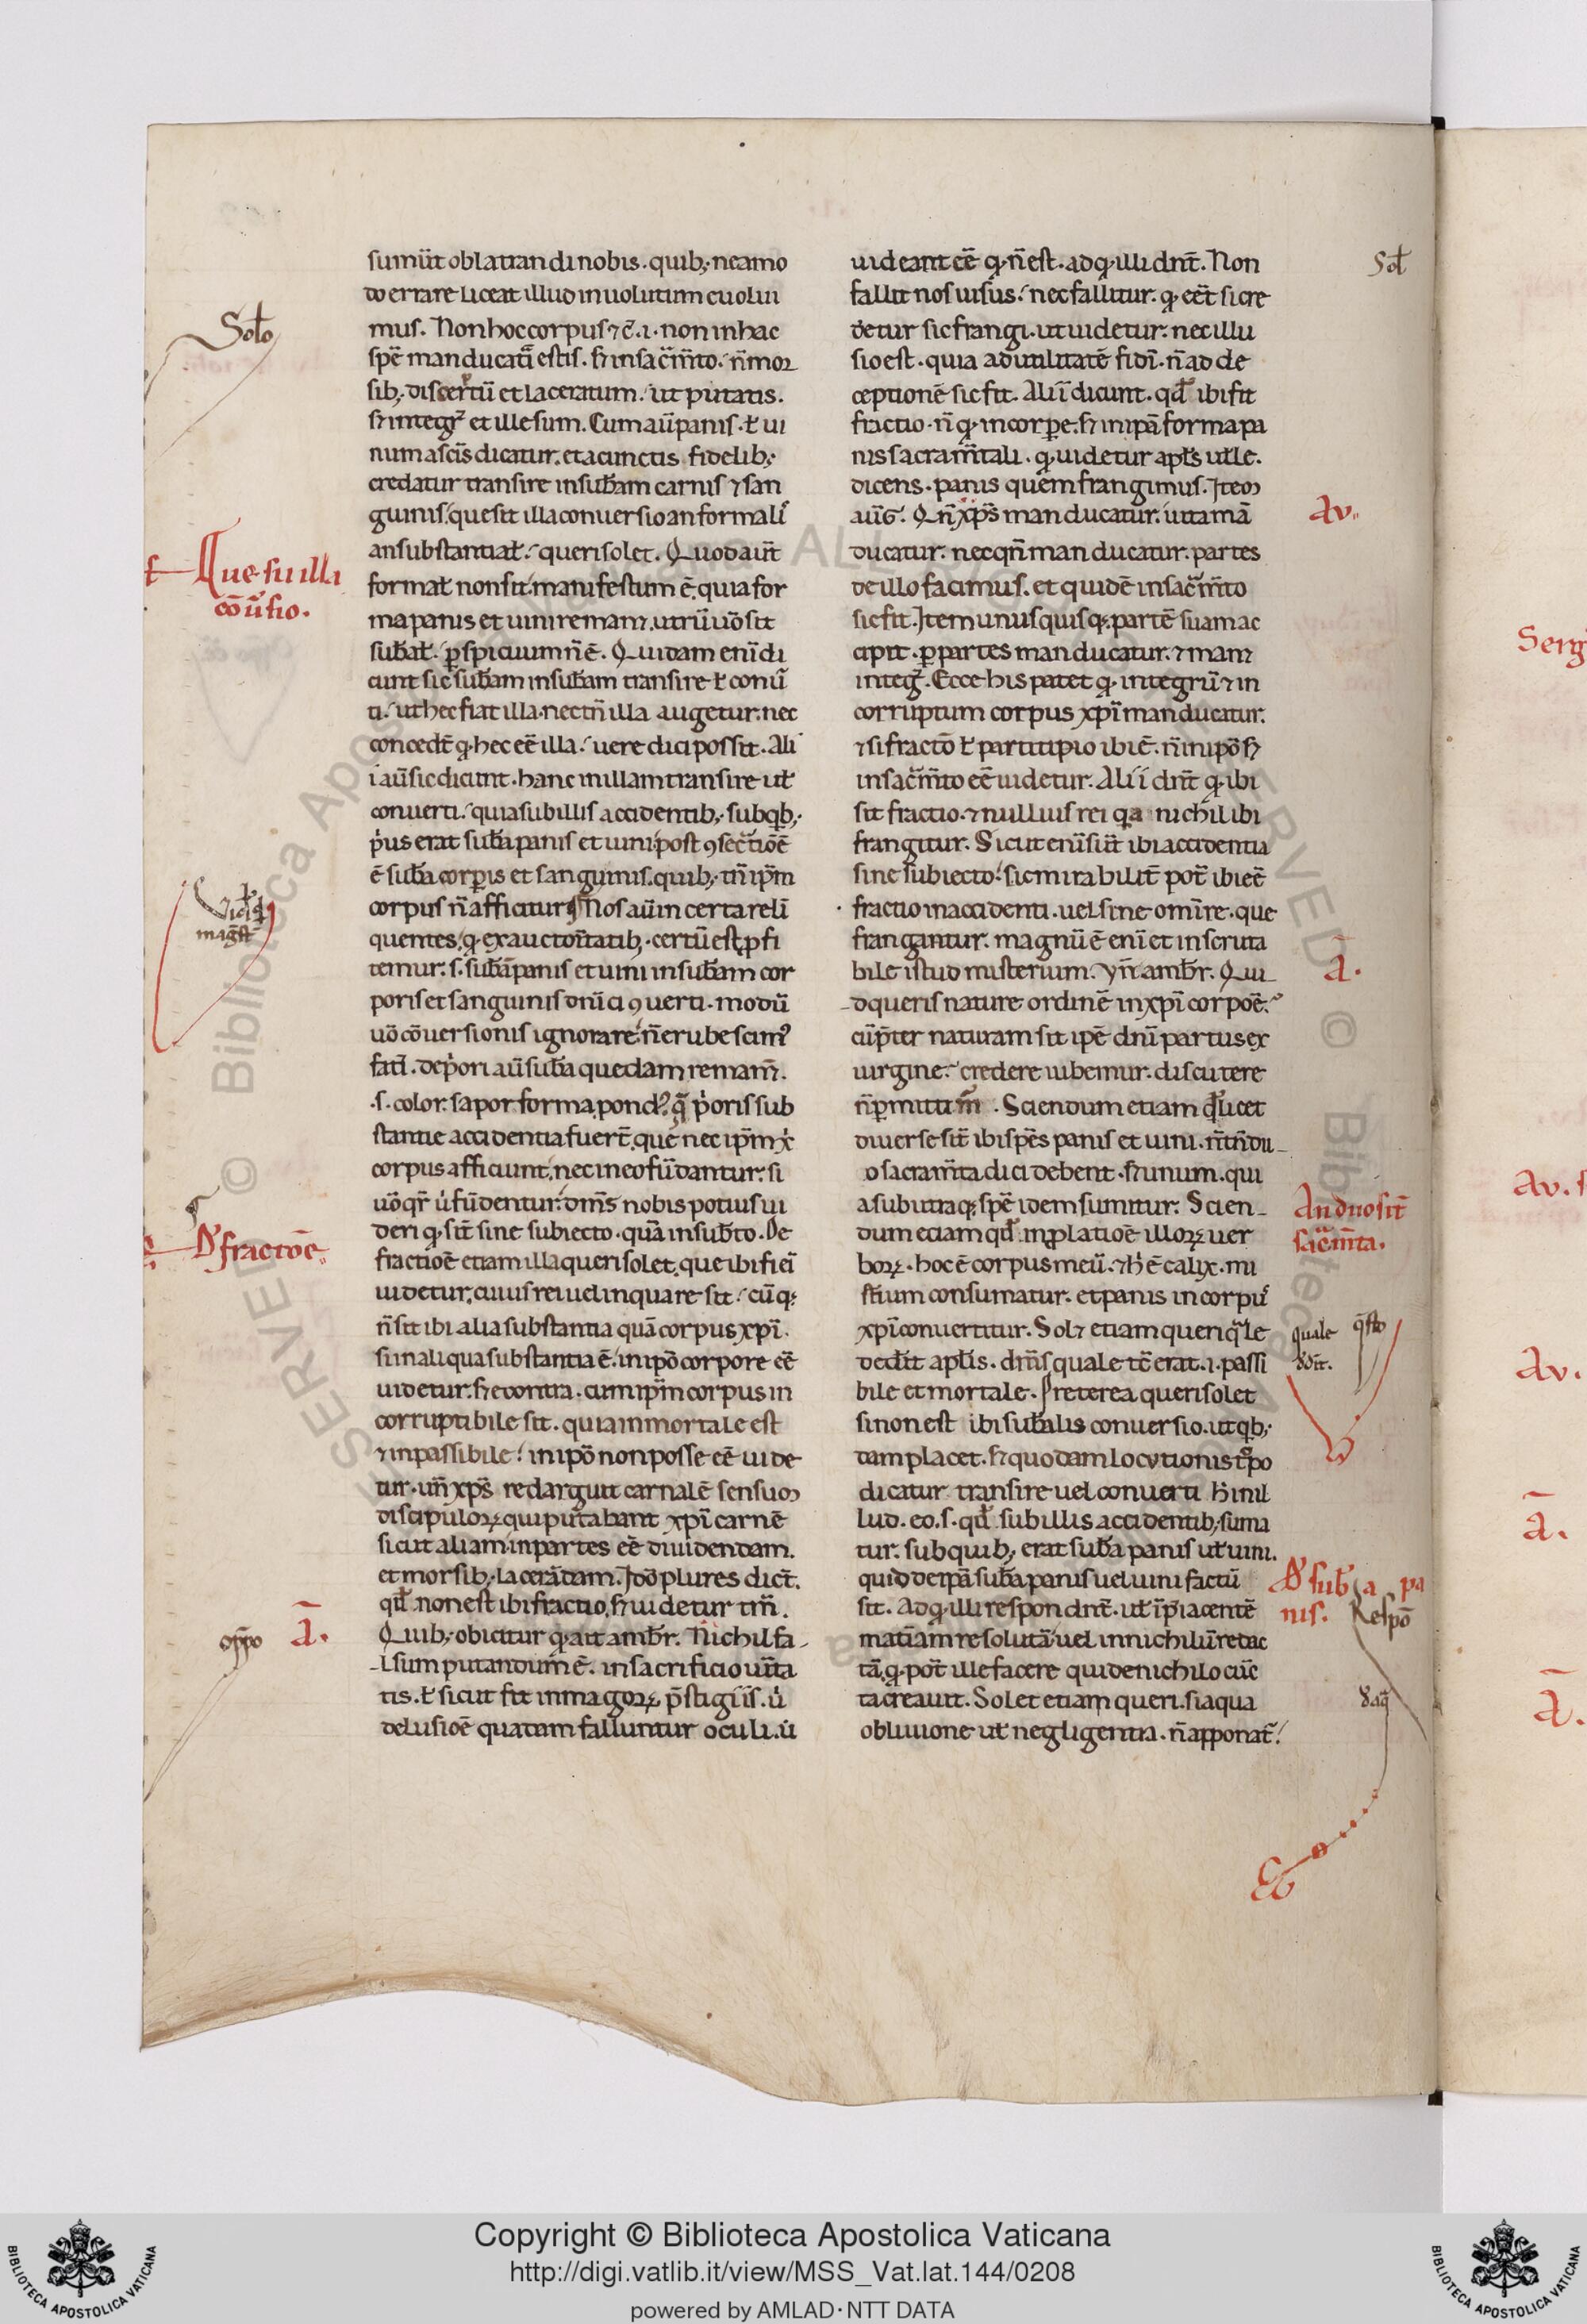 sumūt oblatrandi nobis. quib; neamo
do errare liceat illud inuolutum euolui
mus. Non hoc corpus ⁊ c̄. i. non in hac
spē manducatī estis. ſꝫ in sac̄m̄to. n̄ mor
sib; discertū et laceratum. ut putatis.
ſꝫ integr̄ et illesum. Cum aū panis. ł ui
num a scīs dicatur. et a cunctis fidelib;
credatur transire in sub̄am carnis ⁊ san
guinis. que sit illa conuersio an formalī
an substantiał. queri solet. Quod aūt
formał non sit. manifestum ē. quia for
ma panis et uini remanꝫ. utrū uō sit
sub̄ał. ꝑspicuum n̄ ē. Quidam enī di
cunt sic sub̄am in sub̄am transire ł conū
ti. ut hec fiat illa. nec tn̄ illa augetur. nec
concedt̄ ꝙ hec eē illa. uere dici possit. Ali
i aū sic dicunt. hanc in illam transire uł
conuerti. quia sub illis accidentib; sub qb;
pus erat sub̄a panis et uini. post ꝯsecᷓtiōē
ē sub̄a corꝑis et sanguinis. quib; tn̄ ip̄m
corpus n̄ afficitur. Nos aū incerta reli
quentes. ꝙ ex auctoritatib; certū est ꝓfi
temur. s. sub̄ā panis et uini in sub̄am cor
poris et sanguinis dnīci ꝯuerti. modū
uō cōuersionis ignorare. n̄ erubescimꝰ
fatł. de priori aū sub̄a quedam remanꝫ.
.s. color. sapor forma. pondꝰ. q̄ prioris sub
stantie accidentia fuert̄. que nec ip̄m xp̄i
corpus afficiunt. nec in eo fūdantur. si
uō qr̄ ū fūdentur. om̄s nobis potius ui
deri ꝙ sīt sine subiecto. quā in sub̄to. De
fractiōē etiam illa queri solet. que ibi fierī
uidetur. cuius rei uel in qua re sit. cū qꝫ
n̄ sit ibi alia substantia quā corpus xp̄i.
si in aliqua substantia ē. in ip̄o corpore eē
uidetur. ſꝫ econtra. cum ip̄m corpus in
corruptibile sit. quia inmortale est
⁊ inpassibile. in ip̄o non posse eē uide
tur. un̄ xp̄s redarguit carnalē sensum
discipuloꝝ qui putabant xp̄i carnē
sicut aliam in partes eē diuidendam.
et morsib; lacerādam. Ideo plures dicīt.
qd̄ non est ibi fractio. ſꝫ uidetur tm̄.
Quib; obicitur ꝙ ait amb̄r. Nichil fa
lsum putandum ē. in sacrificio uīta
tis. ł sicut fit in magoꝝ p̄stigiis. ū
delusiōē quadam falluntur oculi. ū
uideant eē ꝙ n̄ est. ad ꝙ illi dn̄t. Non
fallit nos uisus. nec fallitur. ꝙ eēt si cre
detur sic frangi. ut uidetur. nec illu
sio est. quia ad utilitatē fidī. n̄ ad de
ceptionē sic fit. Aliī dicunt. qd̄ ibi fit
fractio. n̄ ꝙ in corꝑe. ſꝫ in ip̄a forma pa
nis sacram̄tali. ꝙ uidetur apl̄s uelle.
dicens. panis quem frangimus. Item
auḡ. Qn̄ xp̄s manducatur. uita mā
ducatur. nec qn̄ manducatur. partes
de illo facimus. et quidē in sac̄m̄to
sic fit. Item unusquisqꝫ partē suam ac
cipit. ꝑ partes manducatur. ⁊ manꝫ
integr̄. Ecce his patet ꝙ integrū ⁊ in
corruptum corpus xp̄i manducatur.
⁊ si fractō ł partitipio ibi ē. n̄ in ip̄o ſꝫ
in sac̄m̄to eē uidetur. Alii dn̄t ꝙ ibi
sit fractio. ⁊ nullius rei qa nichil ibi
frangitur. Sicut enī sūt ibi accidentia
sine subiecto. sic mirabilit̄ pot̄ ibi eē
fractio in accidenti. uel sine omī re. que
frangantur. magnū ē enī et inscruta
bile istud misterium. Vn̄ amb̄r. Qui
d queris nature ordinē in xp̄i corpoē.
cū p̄ter naturam sit ip̄e dn̄i partus ex
uirgine. credere iubemur. discutere
n̄ ꝑmittim̄. Sciendum etiam ꝙ licet
diuerse sīt ibi spēs panis et uini. n̄ tn̄ du
o sacram̄ta dici debent. ſꝫ unum. qui
a sub utraqꝫ spē idem sumitur. Scien
dum etiam qd̄ in ꝓlatiōē illoꝝ uer
boꝝ. hoc ē corpus meū. ⁊ h̄ ē calix. mi
st̄ium consumatur. et panis in corpꝰ
xp̄i conuertitur. Solꝫ etiam queri q̄le
dedit apl̄is. dn̄s quale tc̄ erat. i. passi
bile et mortale. Preterea queri solet
si non est ibi sub̄alis conuersio. ut qb;
dam placet. ſꝫ quodam locutionis tropo
dicatur transire uel conuerti h̄ in il
lud. eo. s. qd̄ sub illis accidentib; suma
tur. sub quib; erat sub̄a panis uł uini.
quid de ip̄a sub̄a panis uel uini factū
sit. Ad ꝙ illi respondnt̄. uł ī p̄iacentē
mat̄iam resolutā. uel in nichilū redac
tā. ꝙ pot̄ ille facere qui de nichilo cūc
ta creauit. Solet etiam queri. si aqua
obliuione uł negligentia. n̄ apponat̄.
Solo
Que sit illa
cōūsio.
magist̄
D' fractōe
oppo
ā.
Sol
Av.
ā.
An duo sīt
sac̄m̄ta.
quale
ddit.
q̄sto
D' sub̄a pa
nis. Respō
d' aq̄
Serg
Av. s
Av.
ā.
ā.
Copyright © Biblioteca Apostolica Vaticana
http://digi.vatlib.it/view/MSS_Vat.lat.144/0208
powered by AMLAD·NTT DATA
BIBLIOTECA APOSTOLICA VATICANA
BIBLIOTECA APOSTOLICA VATICANA